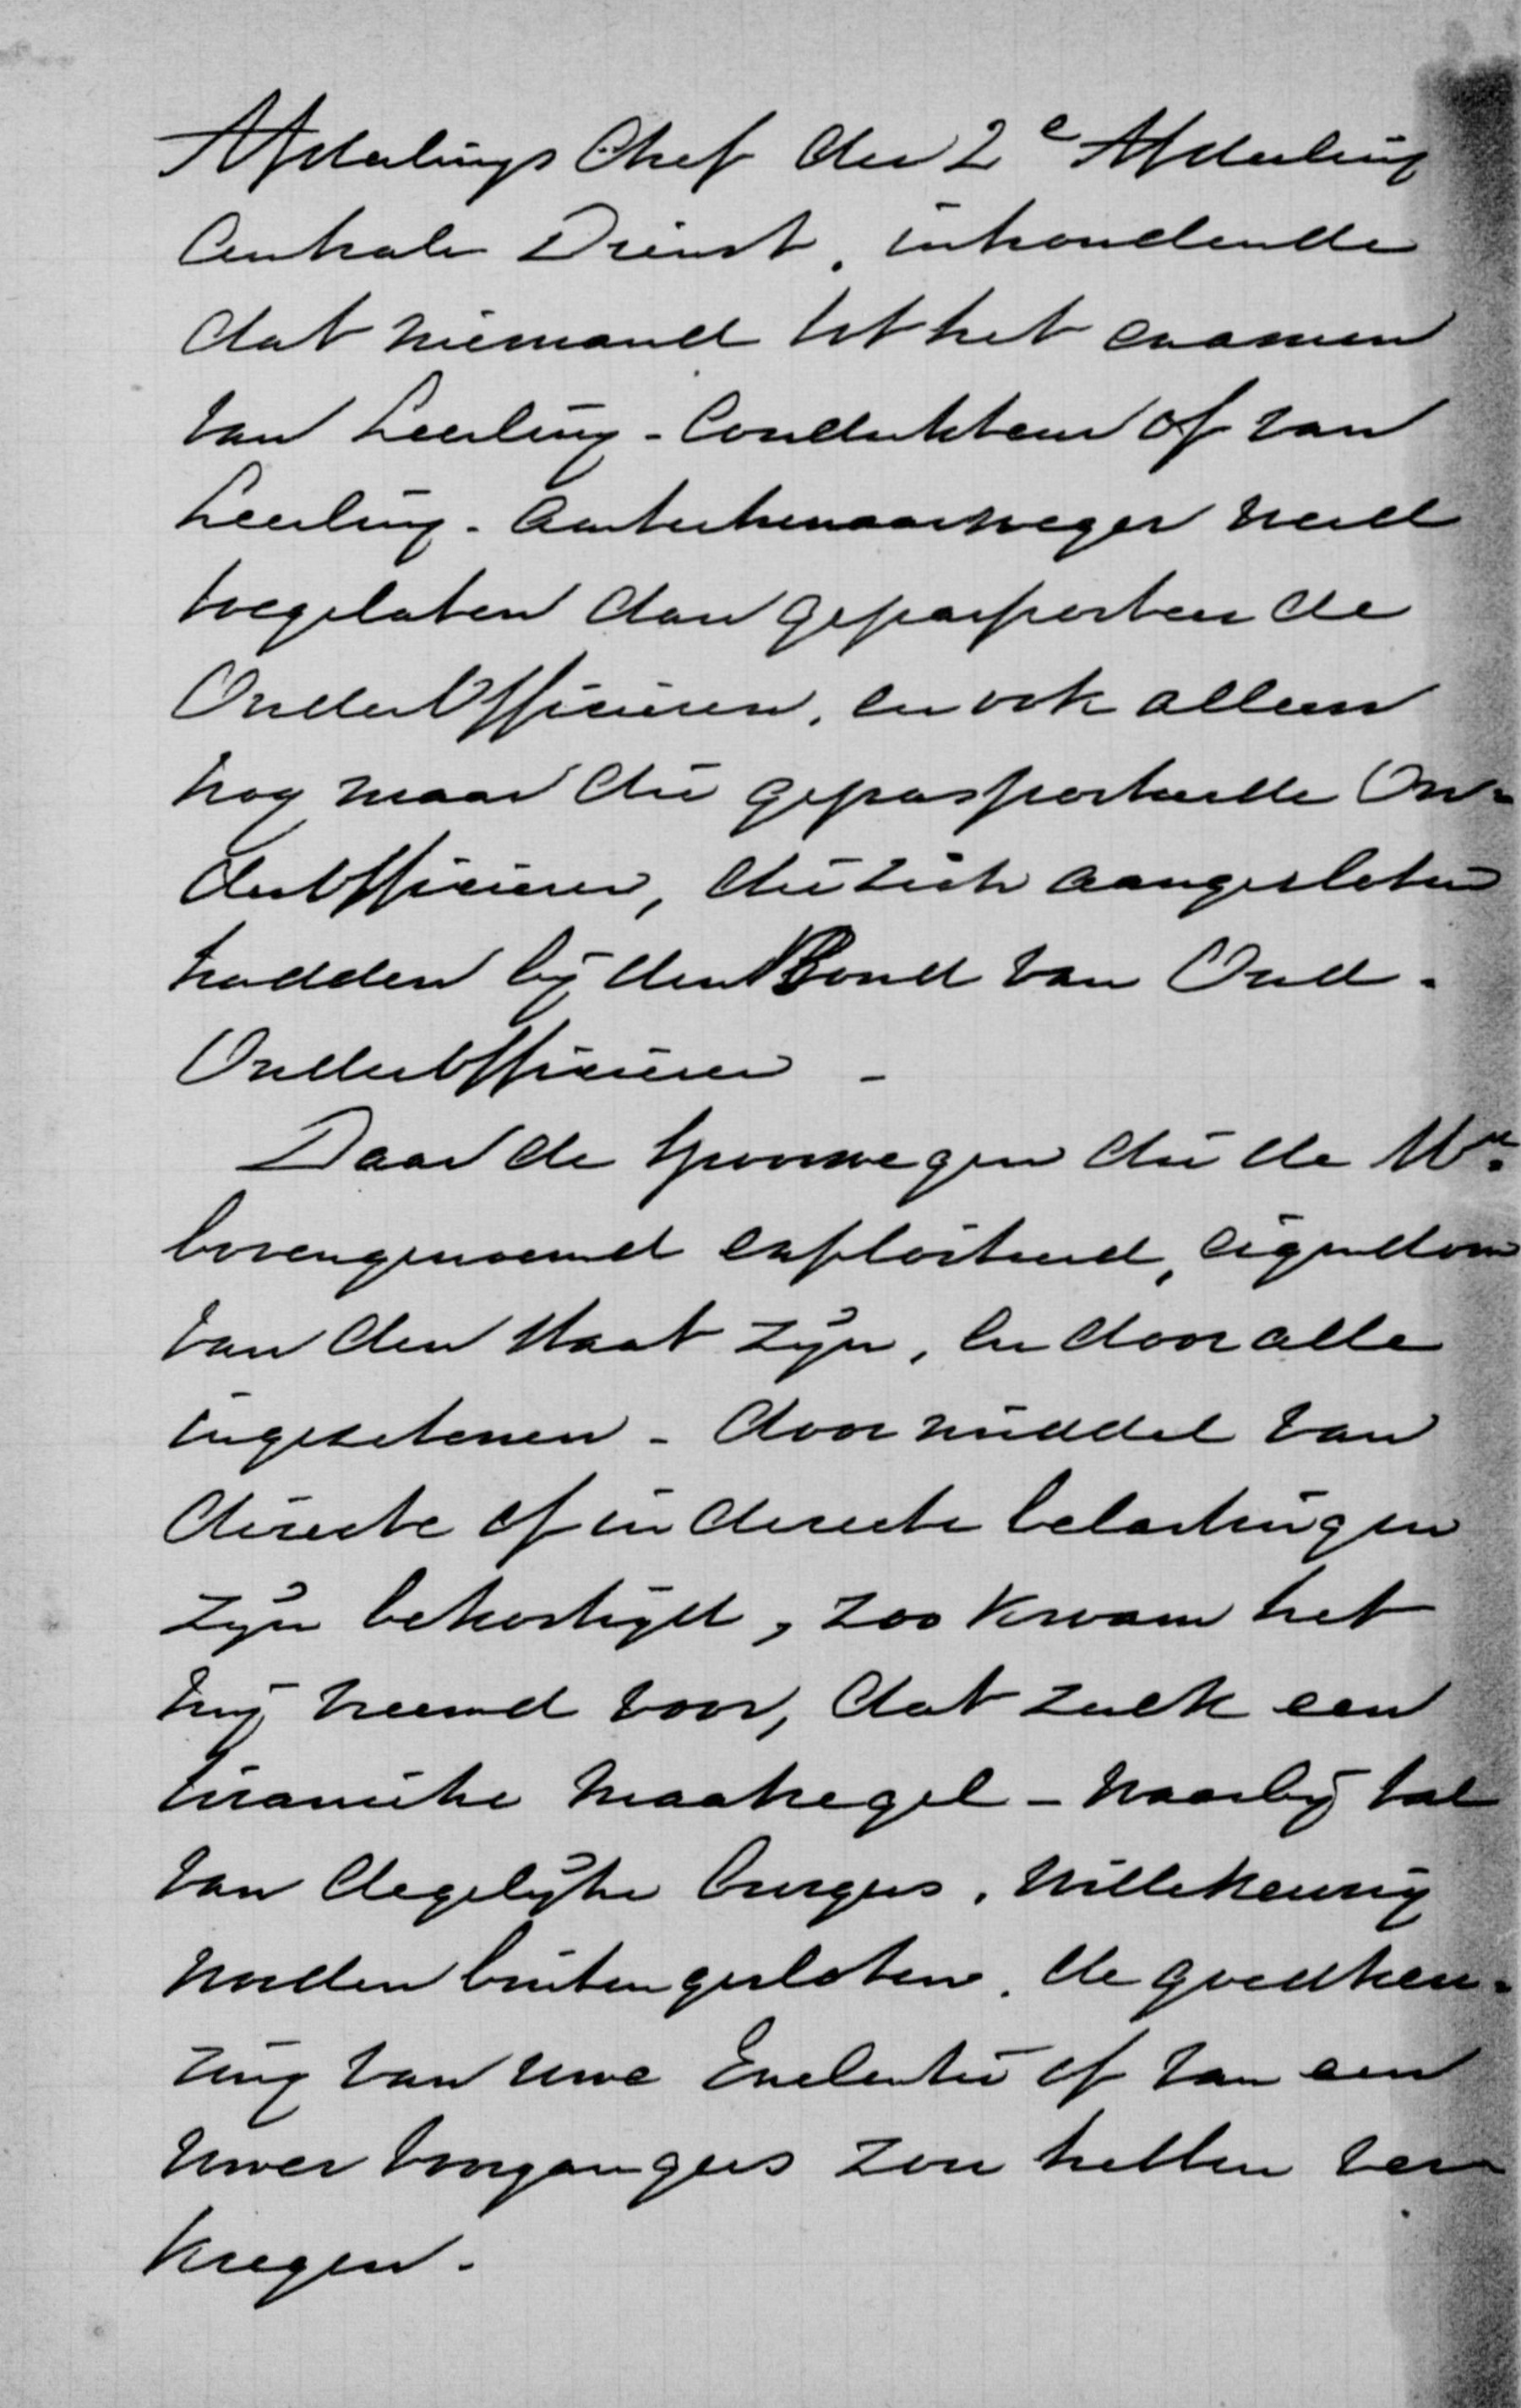 Afdeelings Chef der 2e Afdeeling
Centrale Dienst, inhoudende
dat niemand tot het examen
van Leerling-Condukteur of van
Leerling-Aanteekenaarweger werd
toegelaten dan gepasporteerde
OnderOfficieren, en ook alleen
nog maar die gepasporteerde On-
derOfficieren, die zich aangesloten
hadden bij den Bond van Oud-
OnderOfficieren -
Daar de spoorwegen die de Mij.
bovengenoemd exploiteerd, eigendom
van den Staat zijn, en door alle
ingezetenen - door middel van
directe of in directe belastingen
zijn bekostigd, zoo kwam het
mij vreemd voor, dat zulk een
tiranieke maatregel - waarbij tal
van degelijke burgers, willekeurig
worden buitengesloten, de goedkeu-
ring van Uwe Exelentie of van een
Uwer voorgangers zou hebben ver
kregen.